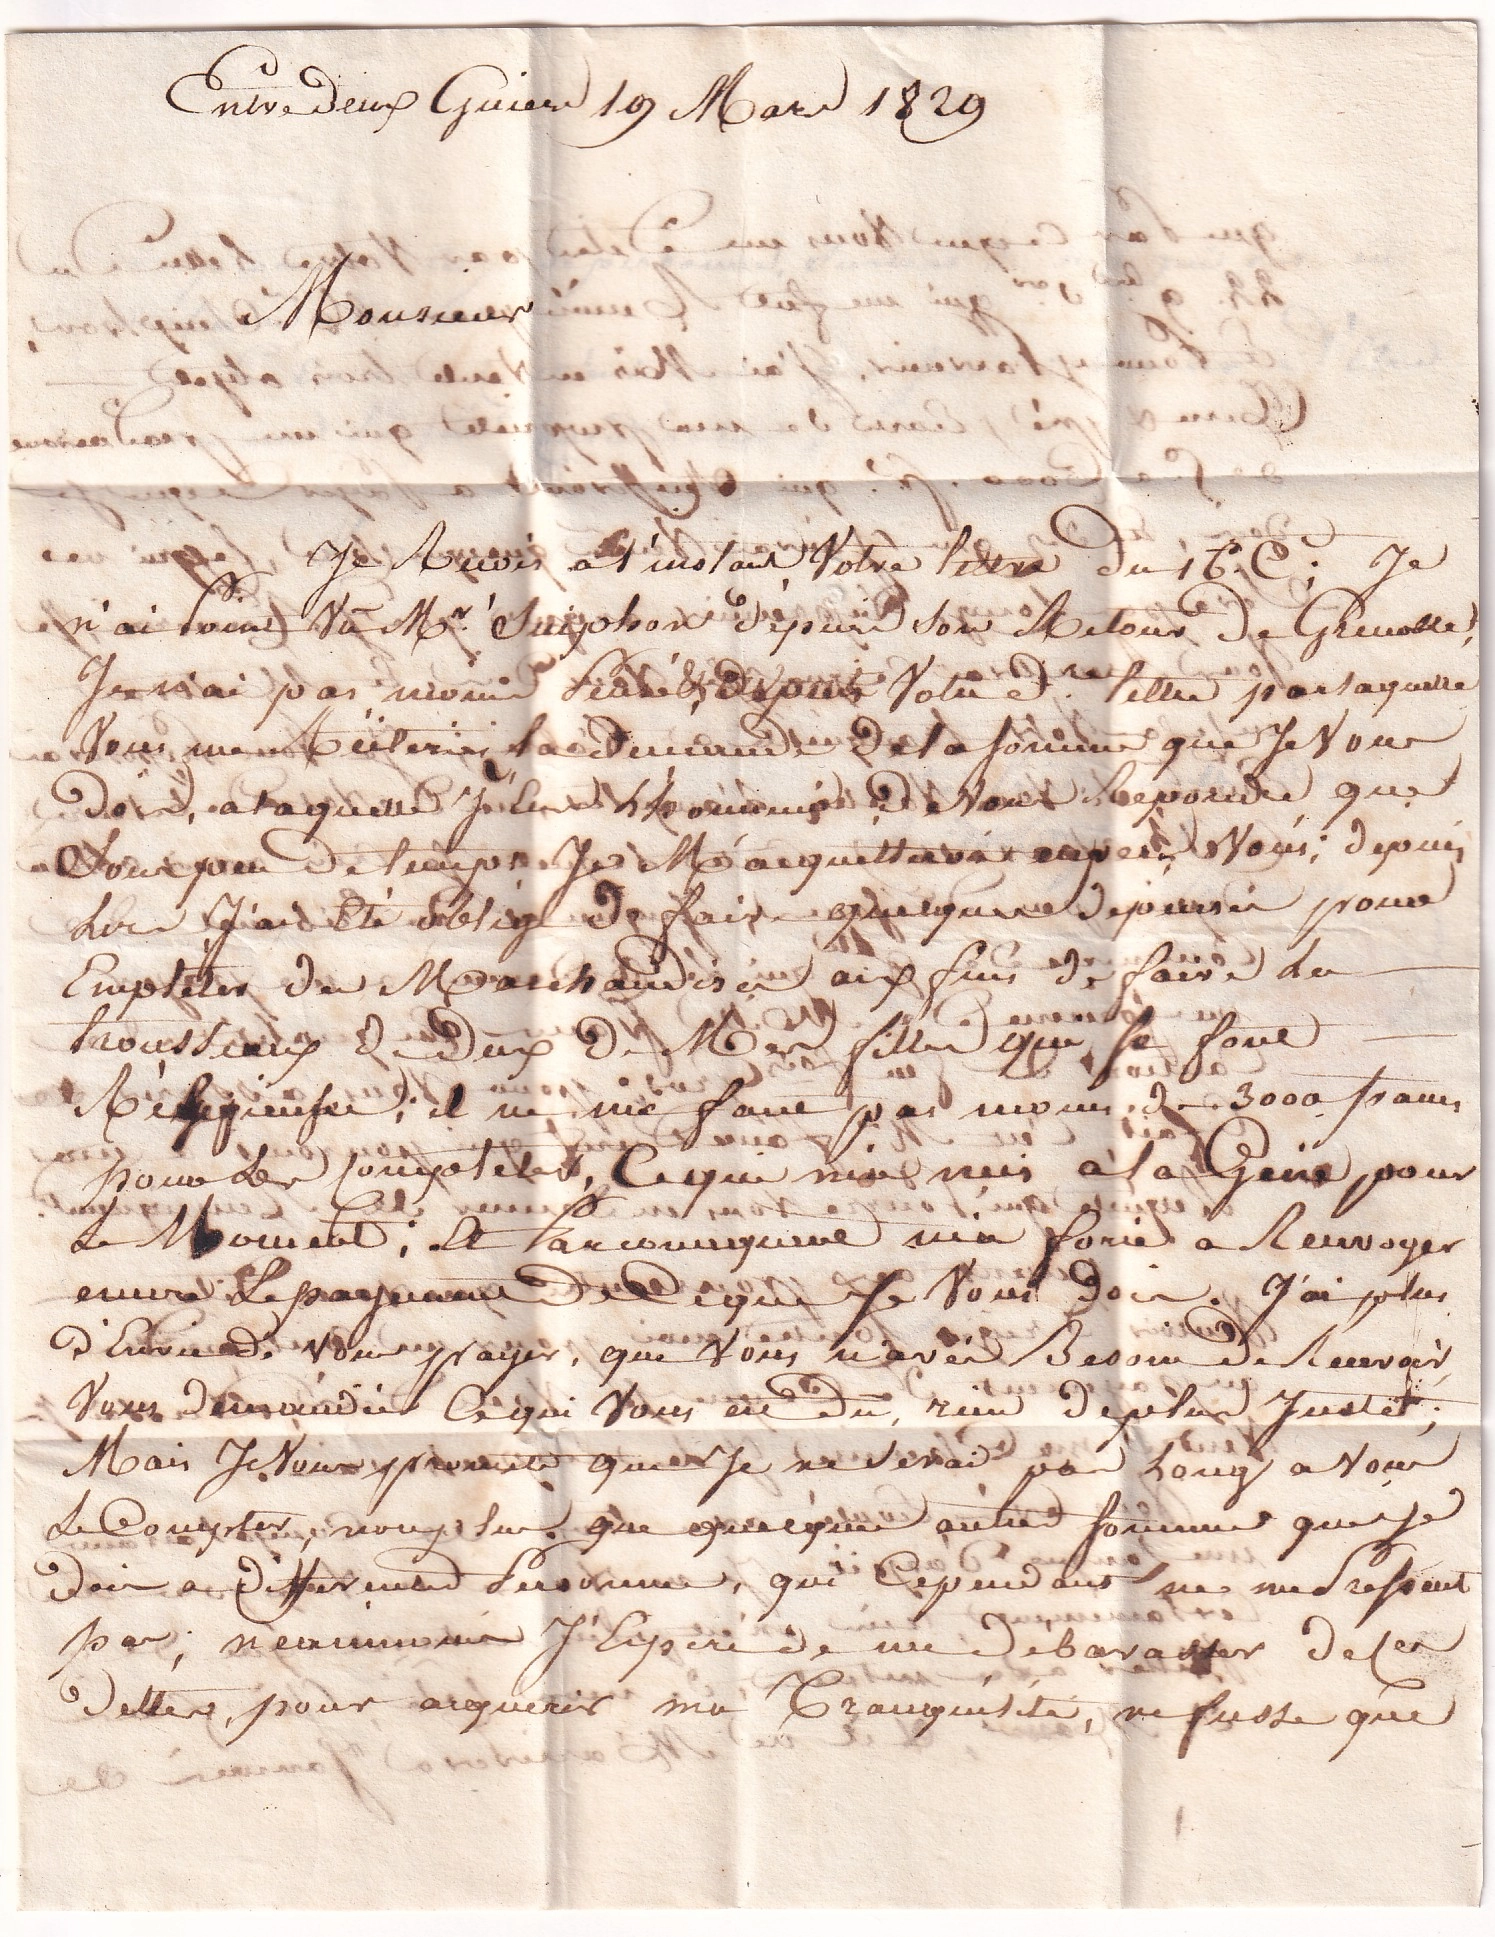 Entredeux Guiers 19 Mars 1829
Monsieur
Je Reçois a l'instant Votre lettre Du 16. C.; Je
n'ai point Vû Mr. depuis son Retour De Grenoble,
Je n'ai pas moins depuis Votre de. lettre par laquelle
Vous me Réiteriez la Demande De la somme que Je Vous
dois, a laquelle J'eus l'honneur de Vous Repondre que
Sous peu de temps Je M'acquitterai envers Vous; depuis
Lors J'ai été obligé de faire quelques depenses pour
Empletes de Marchandises aux fins de faire les
trousseaux de deux de Mes filles qui se font
Réligieuses; il ne me faut pas moins de 3000 francs
pour Les completer, Ce qui m'a mis a la Gene pour
Le Moment; Et Par consequent m'a forcé a Renvoyer
encore Le payement De Ce que Je Vous dois. J'ai plus
d'Envie de Vous payer, que Vous n'avés Besoin de Recevoir,
Vous demandés Ce qui Vous est Du, rien de plus Juste;
Mais Je Vous promets que Je ne serai pas Long a Vous
Le Compter, non plus que quelque autre somme que Je
dois a differends Personnes, qui Cependant ne me Pressent
pas; neanmoins J'Espere de me debarasser de Ces
dettes, pour acquerir ma Tranquilité, ne fusse que